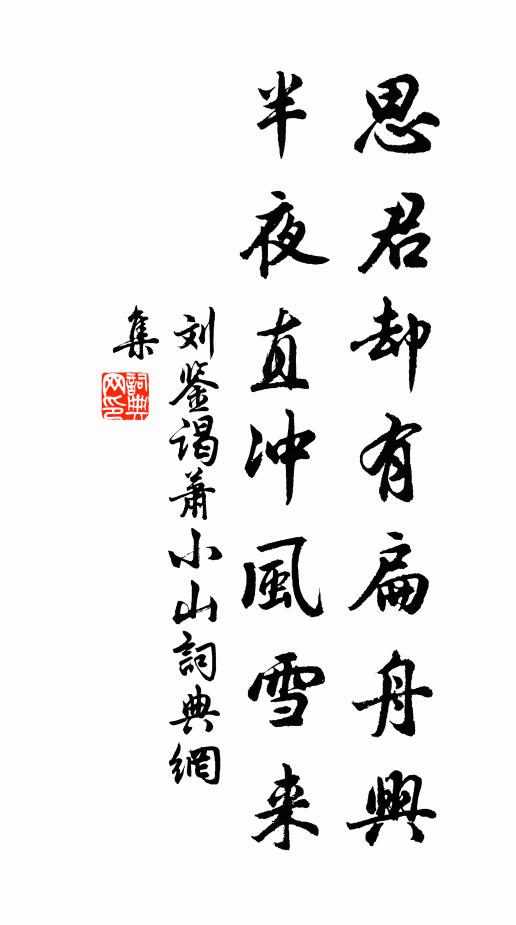 思君却有扁舟興
半夜直冲風雪来
刘鉴谒萧小山詞典網
集
詞典
网印